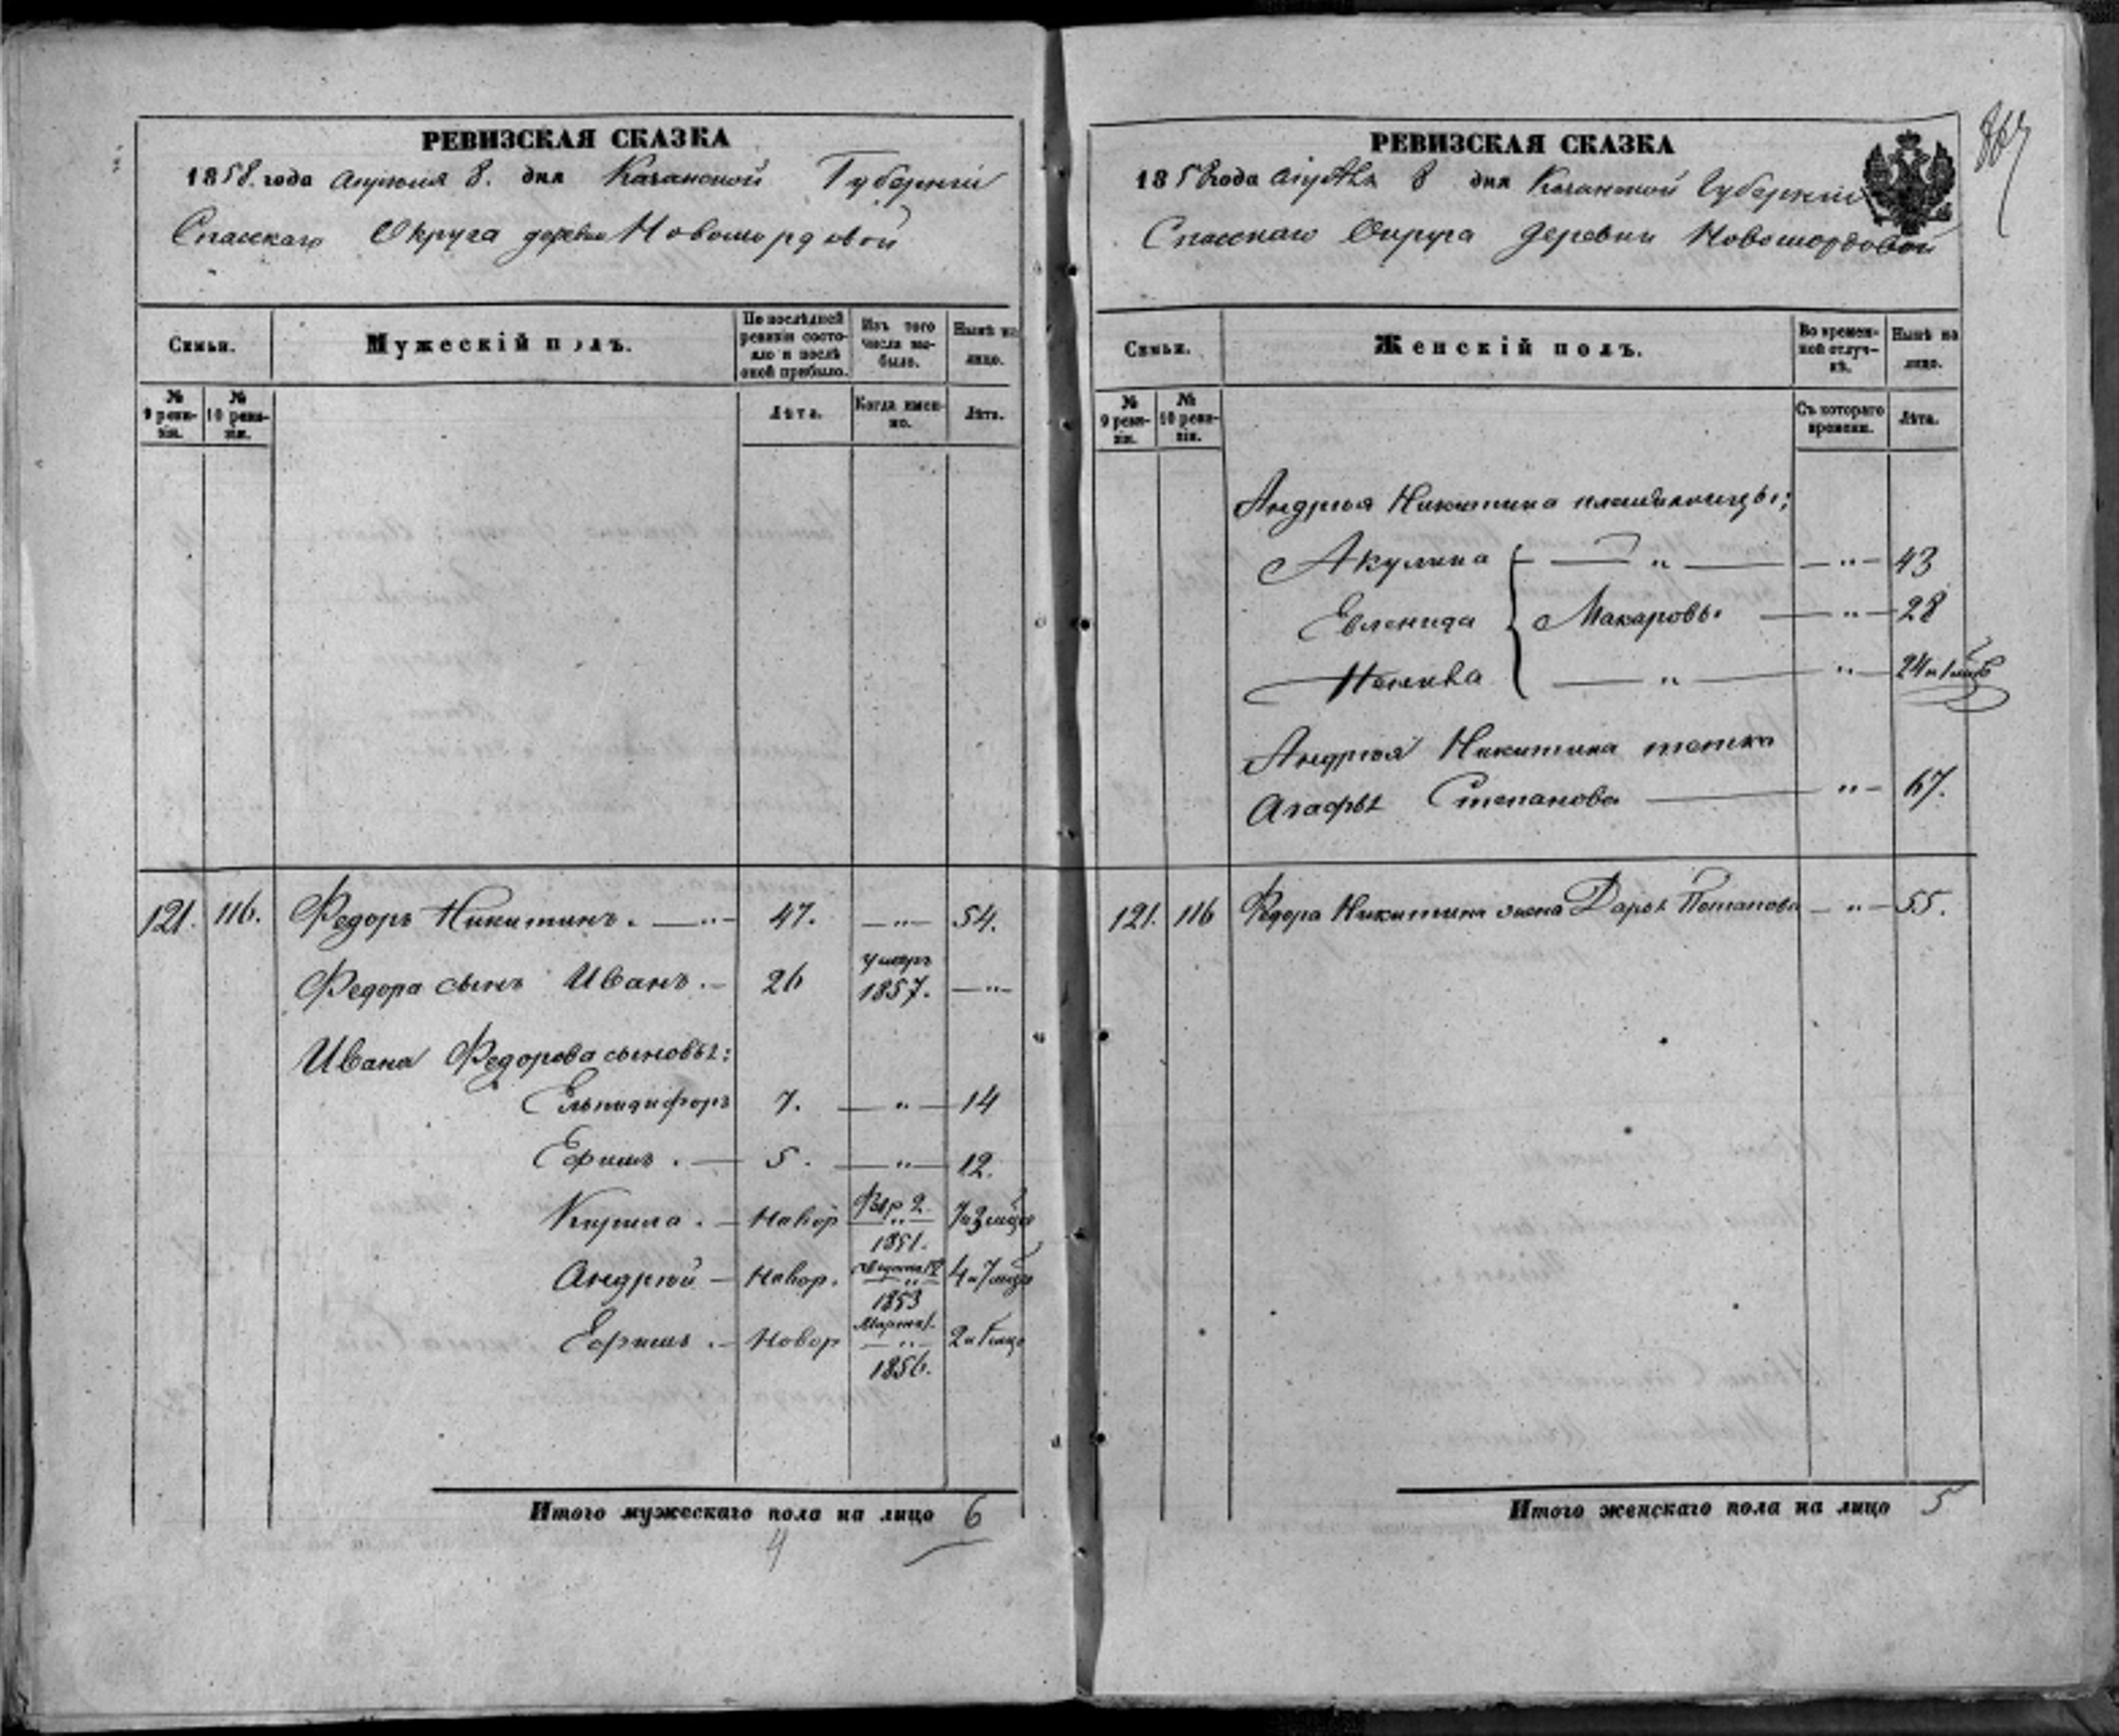 РЕВИЗСКАЯ СКАЗКА
1858. года Апреля 8. дня Казанской Губерніи
Спасскаго Округа деревни Новомордовой
Семьи.
Мужескій полъ.
По послѣдней ревизіи состояло и послѣ оной прибыло.
Изъ того числа выбыло.
Нынѣ на лицо.
№ 9 ревизіи.
№ 10 ревизіи.
Лѣта.
Когда именно.
Лѣта.
121. 116. Федоръ Никитинъ. — „ — 47. — „ — 54.
Федора сынъ Иванъ. — 26 умеръ 1857. — „ —
Ивана Федорова сыновья:
Ельпидифоръ 7. — „ — 14
Ефимъ . — 5. — „ — 12.
Кирила . — Новор 2 „ 1851. 7 и
Андрей — Новор. „ 1853 4 и 7
Ефимъ . — Новор Марта „ 1856. 2 и 1
Итого мужескаго пола на лицо 6
4
РЕВИЗСКАЯ СКАЗКА
1858 года Апреля 8 дня Казанской Губерніи
Спасскаго Округа деревни Новомордовой
Семьи.
Женскій полъ.
Во временной отлучкѣ.
Нынѣ на лицо.
№ 9 ревизіи.
№ 10 ревизіи.
Съ котораго времени.
Лѣта.
Андрея Никитина племянницы:
Акулина { — „ — — „ — 43
Евленида Макаровы — „ — 28
— „ — „ — 24 и 1
Андрея Никитина тетка
Агафья Степанова — „ — 67.
121. 116 Федора Никитина жена Дарья Потапова — „ — 55.
Итого женскаго пола на лицо 5